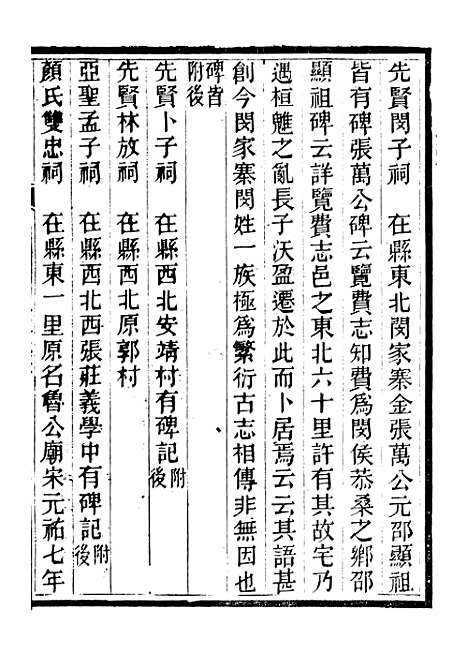 先賢閔子祠　在縣東北閔家寨金張萬公元邵顯祖
皆有碑張萬公碑云覽費志知費爲閔侯恭桑之鄉邵
顯祖碑云詳覽費志邑之東北六十里許有其故宅乃
遇桓魋之亂長子沃盈遷於此而卜居焉云云其語甚
創今閔家寨閔姓一族極爲繁衍古志相傳非無因也
碑皆
附後
先賢卜子祠　在縣西北安靖村有碑記附
後
先賢林放祠　在縣西北原郭村
亞聖孟子祠　在縣西北西張莊義學中有碑記附
後
顏氏雙忠祠　在縣東一里原名魯公廟宋元祐七年